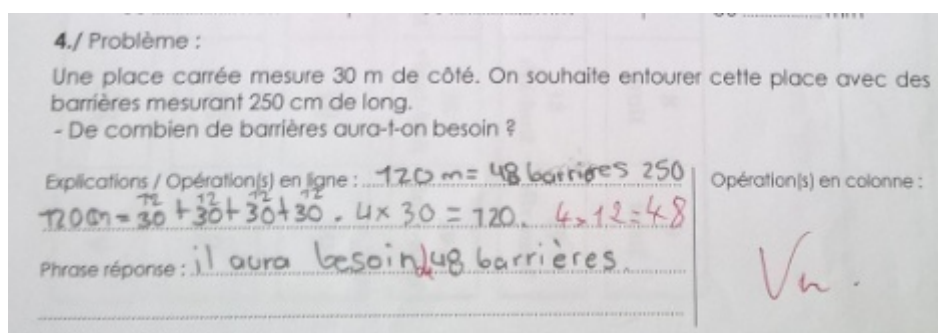 4./ Problème :
Une place carrée mesure 30 m de côté. On souhaite entourer cette place avec des
barrières mesurant 250 cm de long.
- De combien de barrières aura-t-on besoin ?
Explications / Opération(s) en ligne : 120 m = 48 barrières 250
Opération(s) en colonne :
12 12 12 12
120m = 30 + 30 + 30 + 30 . 4 x 30 = 120. 4 x 12 = 48
Phrase réponse : il aura besoin de 48 barrières
Vu.